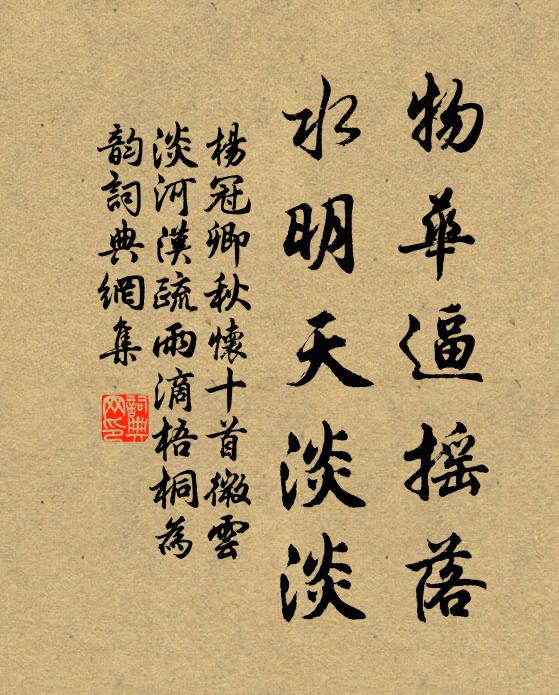 物華逼摇落
水明天淡淡
楊冠卿秋懷十首微雲
淡河漢疏雨滴梧桐為
韵詞典網集
詞典網印